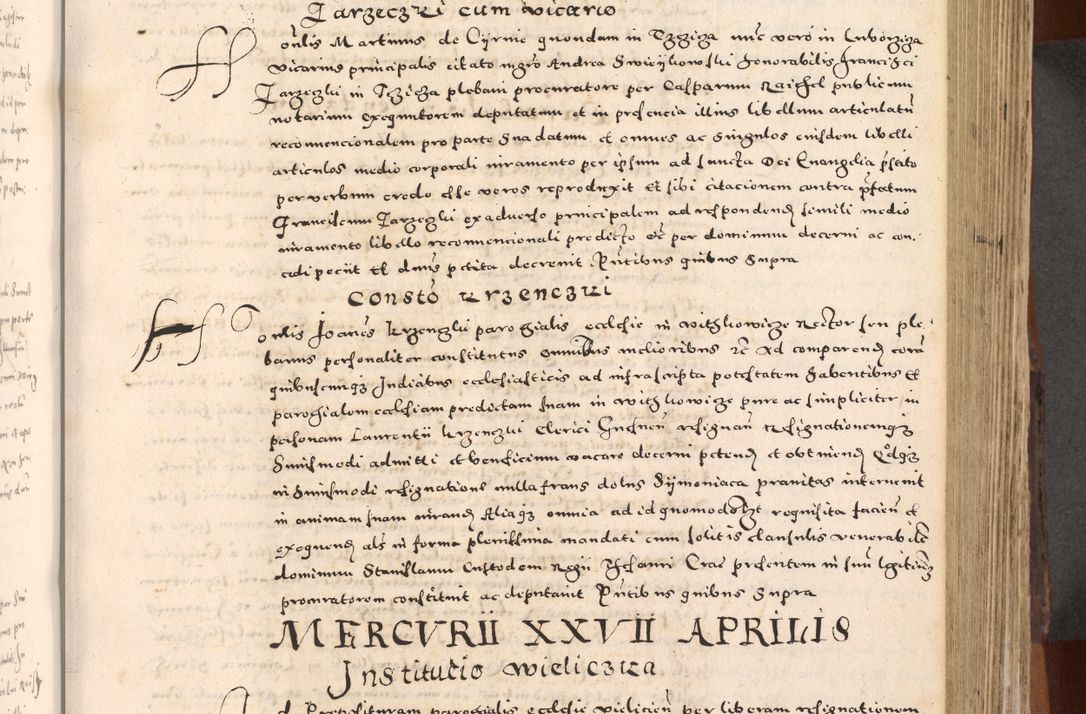 Jarzeczki cum vicario
onlis Martinus de Cyrnie quondam in Tczycza nunc vero in Luborzicza
vicarius principalis citato mgro Andrea Swieijkowski honorabilis Francisci
Jarzeczki in Tczicza plebani procuratore per Casparum Raichel publicum
notarium exequutorem deputatum et in presencia illius libellum articulatum
reconvencionalem pro parte sua datum et omnes ac singulos eiusdem libelli
articulos medio corporali iuramento per ipsum ad sancta Dei Euangelia pstito
per verbum credo esse veros reproduxit et sibi citacionem contra pfatum
Franciscum Jarzeczki ex adverso principalem ad respondend simili medio
iuramento libello reconvencionali predicto etc per dominum decerni ac con:
cedi peciit et dnus petita decrevit Pntibus quibus supra
Consto krzenczki
onlis Joanes krzenczki parochialis ecclesie in withkowicze Rector seu ple:
banus personaliter constitutus omnibus melioribus etc Ad comparend cora
quibuscunqz Iudicibus ecclesiasticis ad infrascripta potestatem habentibus et
parochialem ecclesiam predictam suam in withkowicze pure ac simpliciter in
personam Laurentii krzenczki Clerici Gnesnen resignan Resignationemqz
huiusmodi admitti et beneficium vacare decerni petend et obtinend Qdqz
in huiusmodi resignatione nulla fraus dolus Symoniaca pravitas intervenit
in animam suam iurand Aliaqz omnia ad id quomodolzt requisita facien et
exequend als in forma plenissima mandati cum solitis clausulis venerabilem
dominum Stanislaum Custodem Regii Crac presentem in suu legitimu
procuratorem constituit ac deputavit Pntibus quibus supra
MERCVRII XXVII APRILIS
Institutio wieliczka
d Preposituram parochialis ecclesie vielicien per liberam resignationem